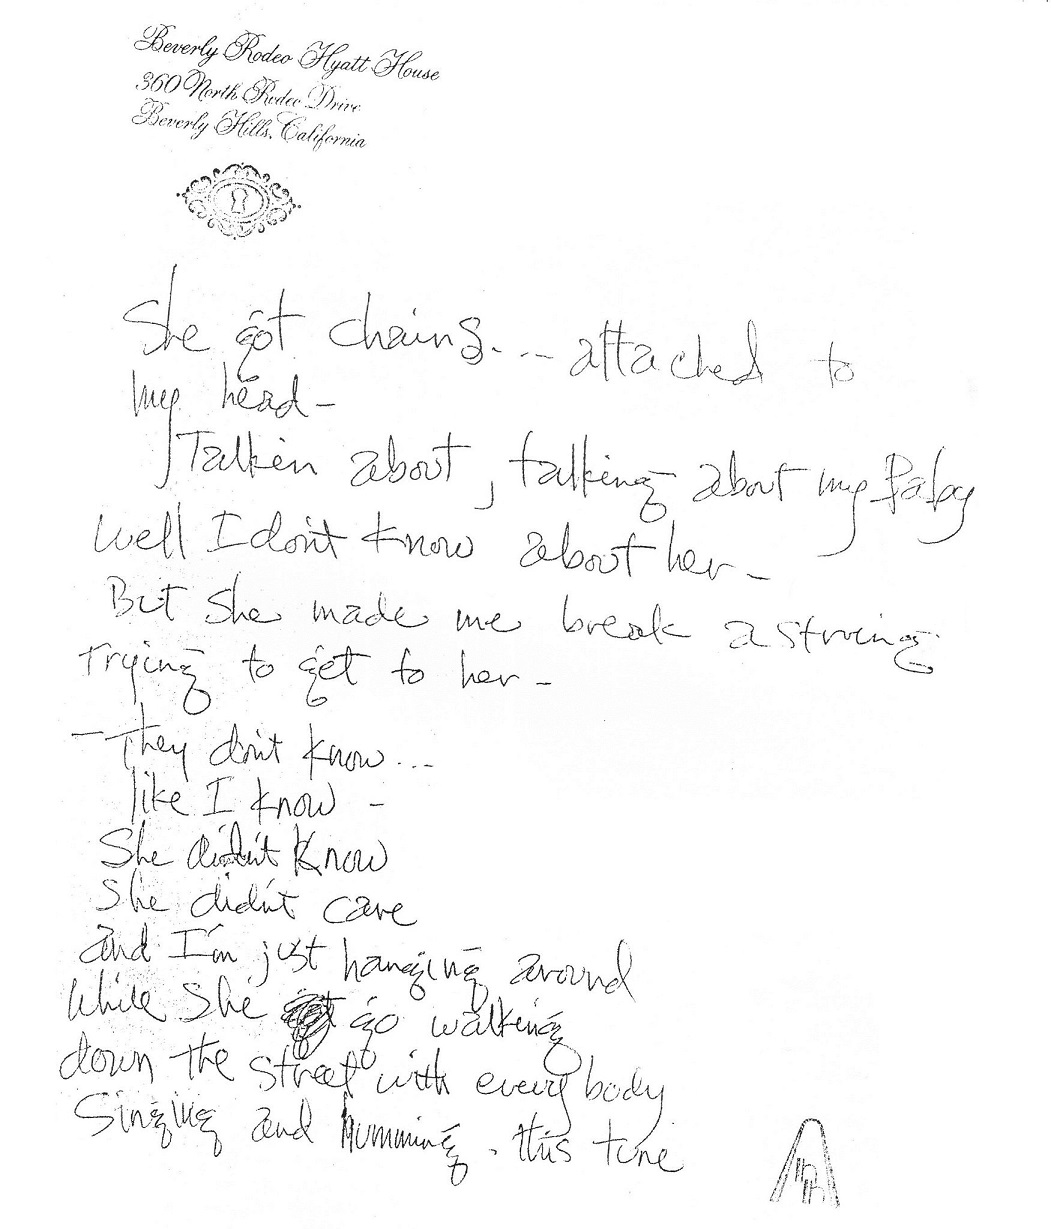 Beverly Rodeo Hyatt House
360 North Rodeo Drive
Beverly Hills, California
She got chains... attached to
my head -
Talkin about, talking about my Baby
Well I don't know about her -
But she made me break a string
Trying to get to her -
- They don't know...
like I know -
She didn't Know
She didn't care
and I'm just hanging around
While she go walking
down the street with everybody
Singing and humming. this tune